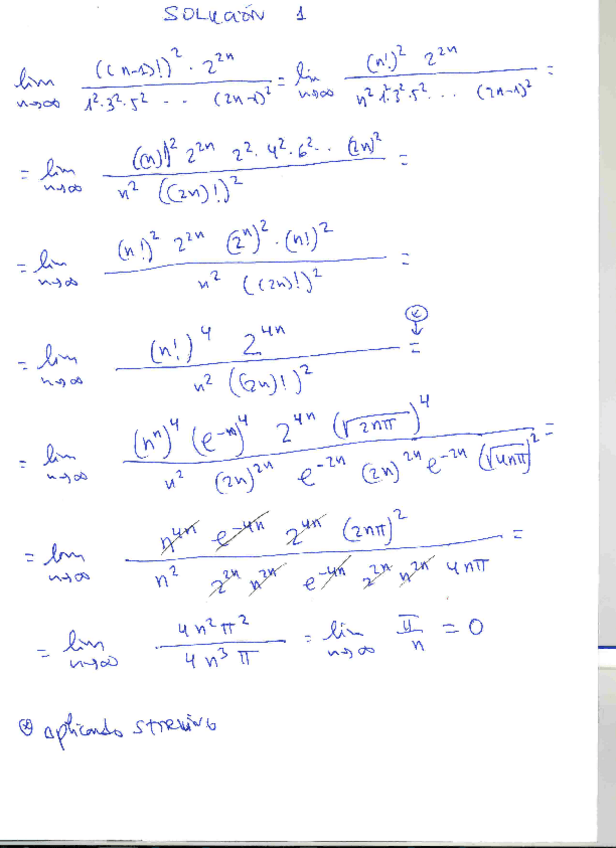 SOLUCIÓN 1
lim n→∞ ((n-1)!)² · 2²ⁿ / 1²·3²·5² ·· (2n-1)² = lim n→∞ (n!)² 2²ⁿ / n² 1²·3²·5² ··· (2n-1)² =
= lim n→∞ (n!)² 2²ⁿ 2²·4²·6² ·· (2n)² / n² ((2n)!)² =
= lim n→∞ (n!)² 2²ⁿ (2ⁿ)² · (n!)² / n² ((2n)!)² =
= lim n→∞ (n!)⁴ 2⁴ⁿ / n² ((2n)!)² =
= lim n→∞ (nⁿ)⁴ (e⁻ⁿ)⁴ 2⁴ⁿ (√2nπ)⁴ / n² (2n)²ⁿ e⁻²ⁿ (2n)²ⁿ e⁻²ⁿ (√4nπ)² =
= lim n→∞ n⁴ⁿ e⁻⁴ⁿ 2⁴ⁿ (2nπ)² / n² 2²ⁿ n²ⁿ e⁻⁴ⁿ 2²ⁿ n²ⁿ 4nπ =
= lim n→∞ 4n²π² / 4n³π = lim n→∞ π / n = 0
aplicando